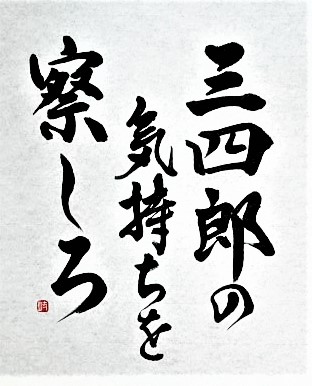 三四郎の
気持ちを
察しろ